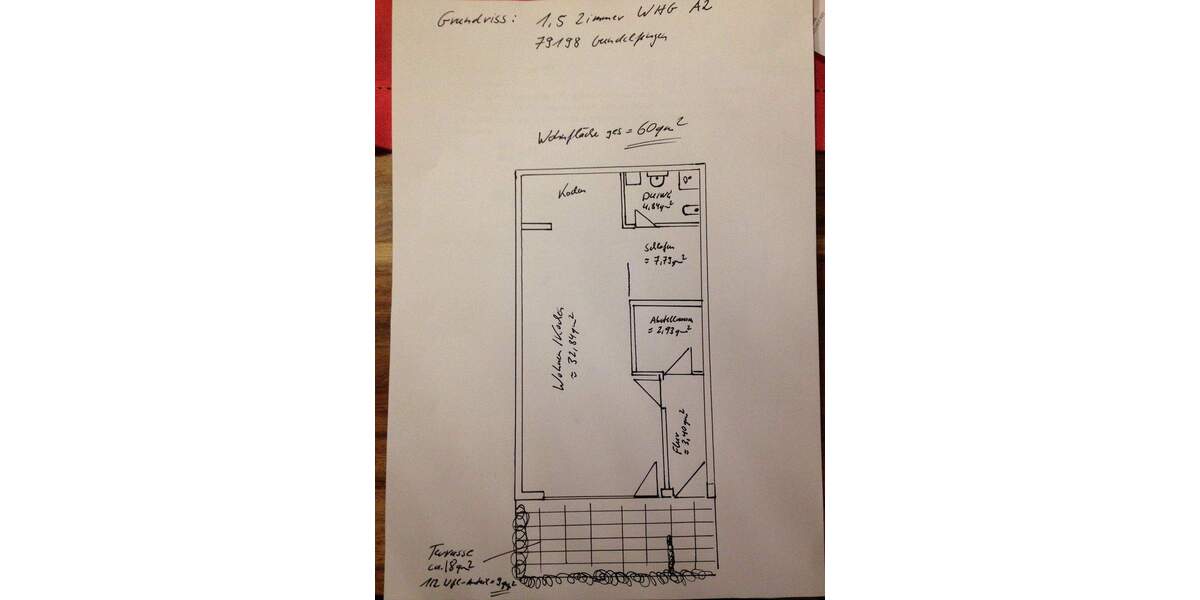 Grundriss: 1,5 Zimmer WHG A2
79198 Gundelfingen
Wohnfläche ges = 60qm²
Kochen
DU/WC
4,84qm²
Schlafen
= 7,79qm²
Abstellraum
= 2,93qm²
Wohnen/Kochen
= 32,84qm²
Flur
= 3,40qm²
Terrasse
ca. 18qm²
1/2 Wfl-Anteil = 9qm²